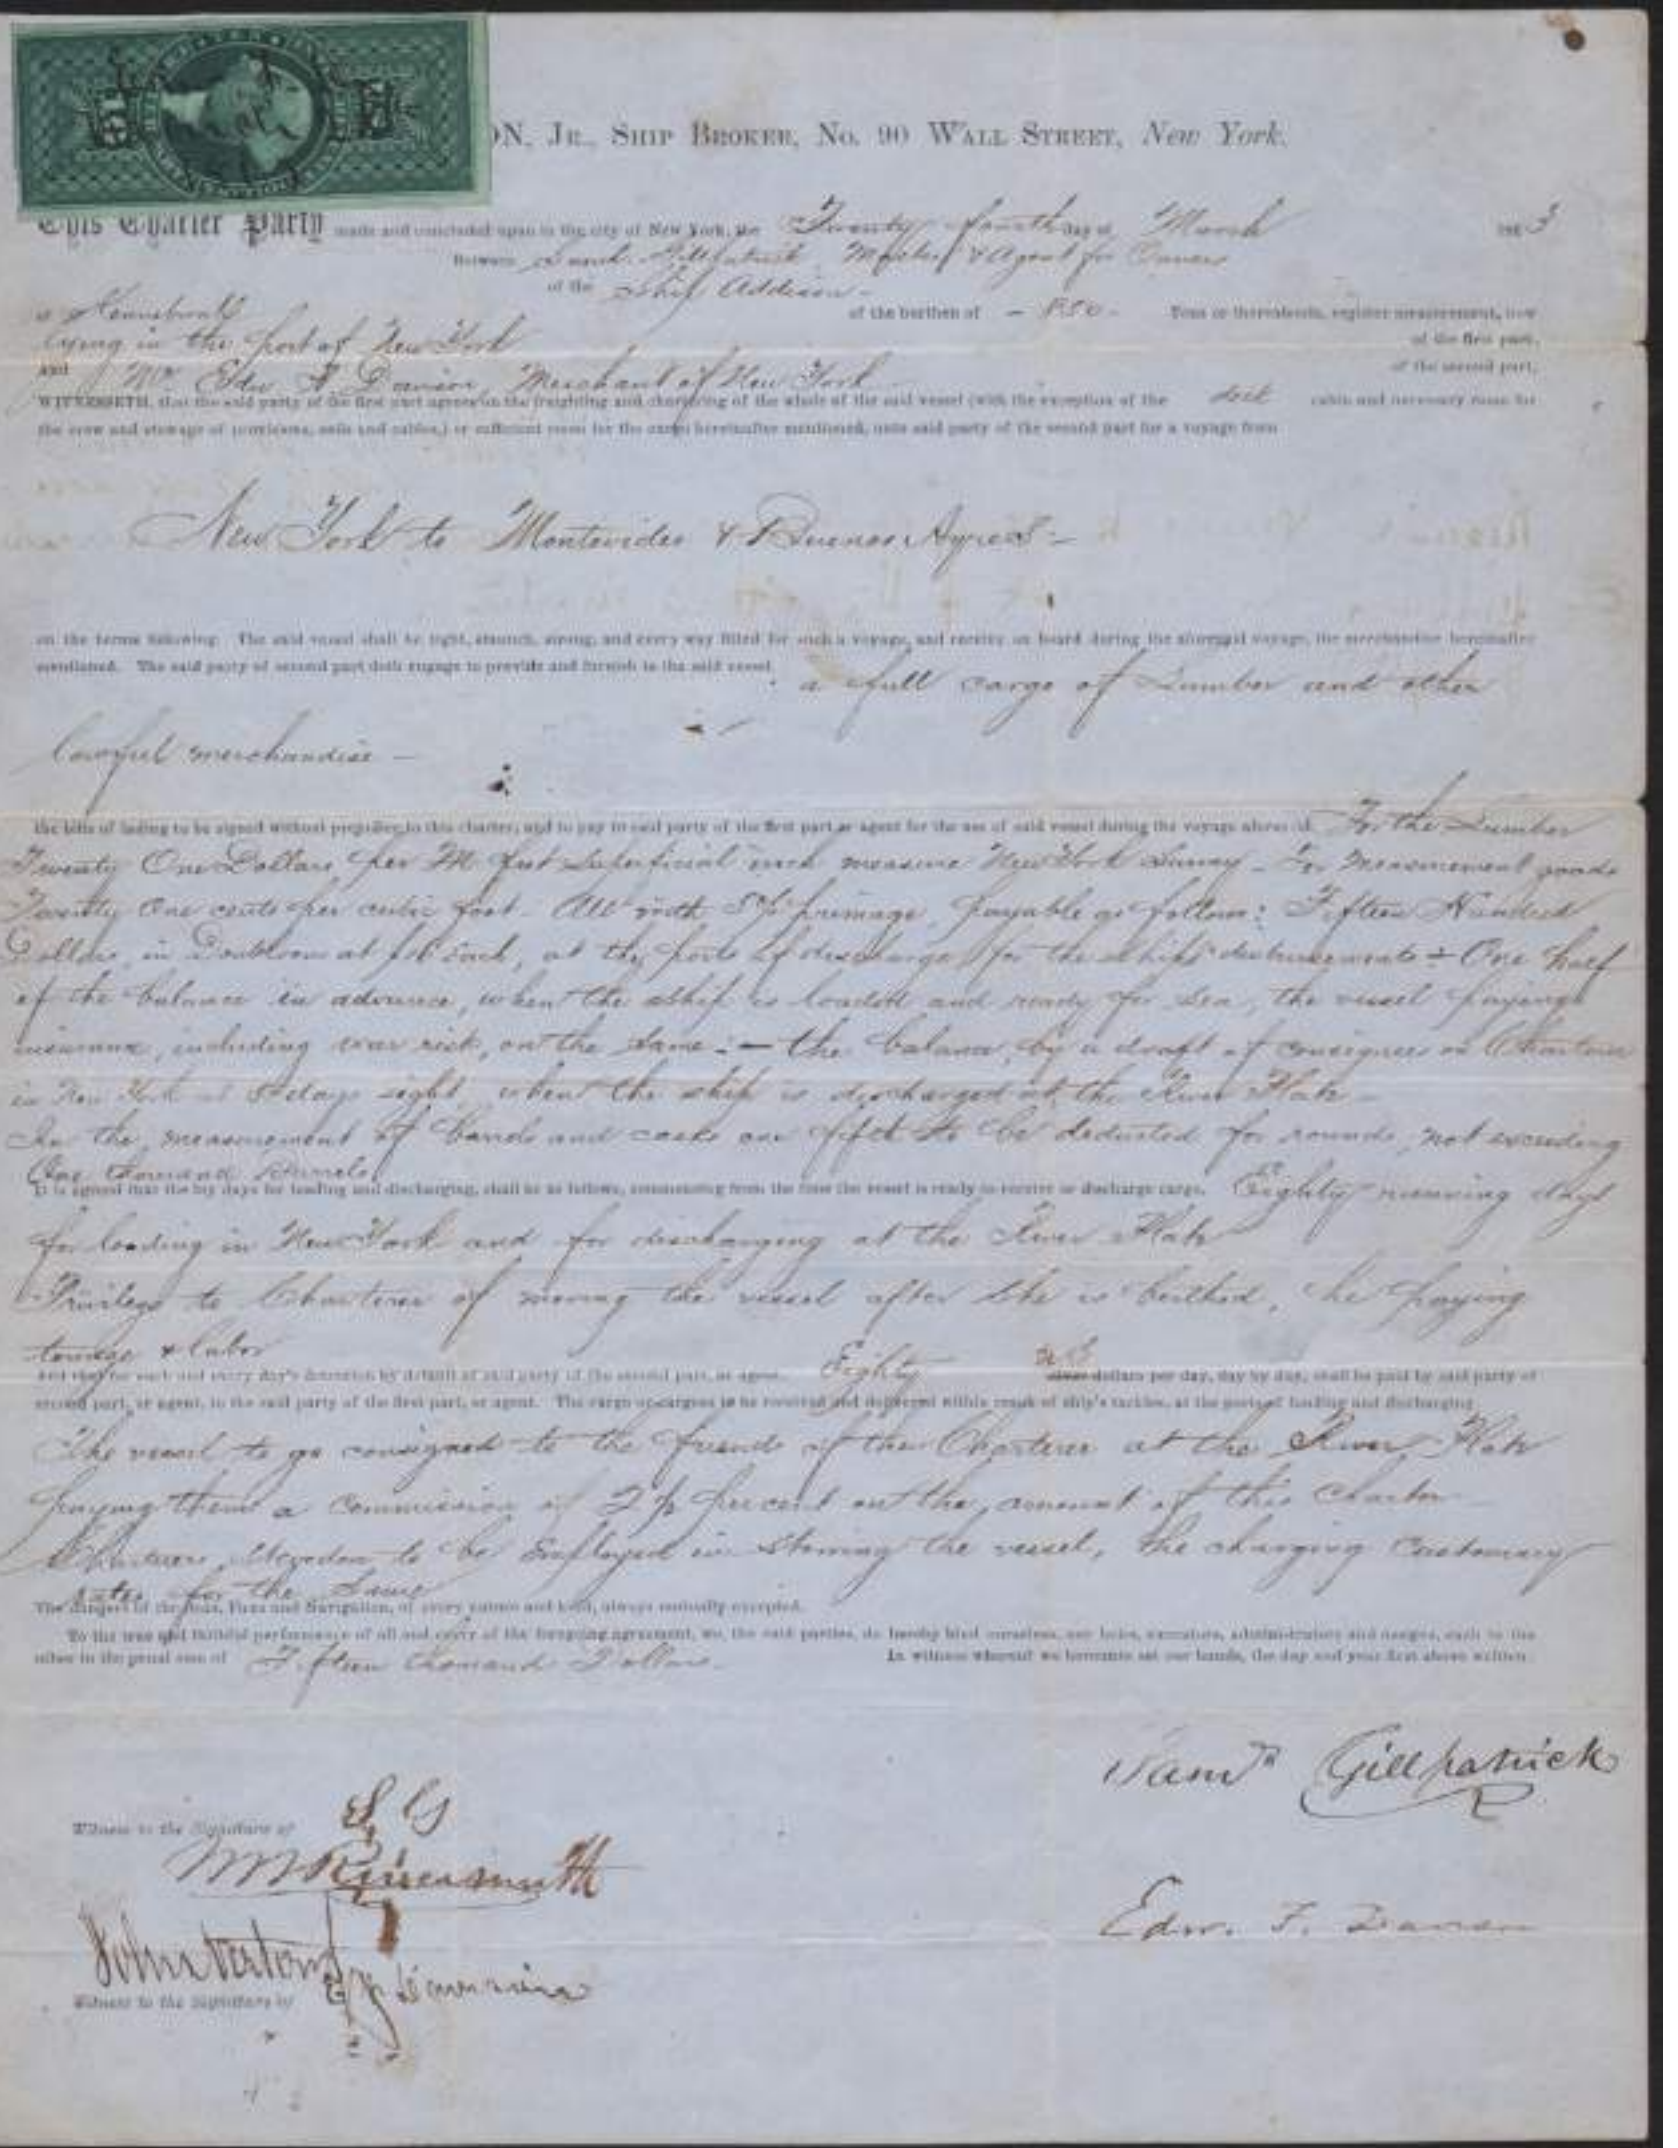 ON, JR., SHIP BROKER, No. 90 WALL STREET, New York.
This Charter Party made and concluded upon in the city of New York, the Twenty fourth day of March 1863
Between Saml. Gillpatrick Master & Agent for Owners
of the Ship Addison
of the burthen of - 850 - Tons or thereabouts, register measurement, now
lying in the port of New York of the first part,
and Mr. Edw F. Davison, Merchant of New York of the second part,
WITNESSETH, that the said party of the first part agrees on the freighting and chartering of the whole of the said vessel (with the exception of the deck cabin and necessary room for
the crew and stowage of provisions, sails and cables,) or sufficient room for the cargo hereinafter mentioned, unto said party of the second part for a voyage from
New York to Montevideo & Buenos Ayres -
on the terms following. The said vessel shall be tight, staunch, strong, and every way fitted for such a voyage, and receive on board during the aforesaid voyage, the merchandise hereinafter
mentioned. The said party of second part doth engage to provide and furnish to the said vessel, a full cargo of Lumber and other
lawful merchandise -
the bills of lading to be signed without prejudice to this charter, and to pay to said party of the first part or agent for the use of said vessel during the voyage aforesaid. For the Lumber
Twenty One Dollars per M feet Superficial inch measure New York Survey - For Measurement goods
Twenty One cents per cubic foot. All with 5% primage, payable as follows: Fifteen Hundred
Dollars, in Doubloons at $16 each, at the ports of discharge for the ship's disbursements - One half
of the balance in advance, when the ship is loaded and ready for sea, the vessel paying
insurance, including war risk, on the same: - the balance, by a draft of consignees on Charterer
in New York at days sight, when the ship is discharged at the River Plate -
In the measurement of barrels and casks one fifth to be deducted for rounds, not exceeding
One thousand Barrels.
It is agreed that the lay days for loading and discharging, shall be as follows, commencing from the time the vessel is ready to receive or discharge cargo. Eighty running days
for loading in New York and for discharging at the River Plate
Privilege to Charterer of moving the vessel after she is berthed, he paying
towage & labor
And that for each and every day's detention by default of said party of the second part, or agent, Eighty dollars per day, day by day, shall be paid by said party of
second part, or agent, to the said party of the first part, or agent. The cargo or cargoes to be received and delivered within reach of ship's tackles, at the ports of loading and discharging
The vessel to go consigned to the friends of the Charterer at the River Plate
paying them a commission of 2½ per cent on the amount of this Charter
Charterers Stevedore to be Employed in stowing the vessel, he charging Customary
rates for the same
The dangers of the Seas, Fires and Navigation, of every nature and kind, always mutually excepted.
To the true and faithful performance of all and every of the foregoing agreement, we, the said parties, do hereby bind ourselves, our heirs, executors, administrators and assigns, each to the
other in the penal sum of Fifteen thousand Dollars. In witness whereof we hereunto set our hands, the day and year first above written.
Saml Gillpatrick
Witness to the Signature of S. G
Edw. F. Davison
Witness to the Signature of E F Davison